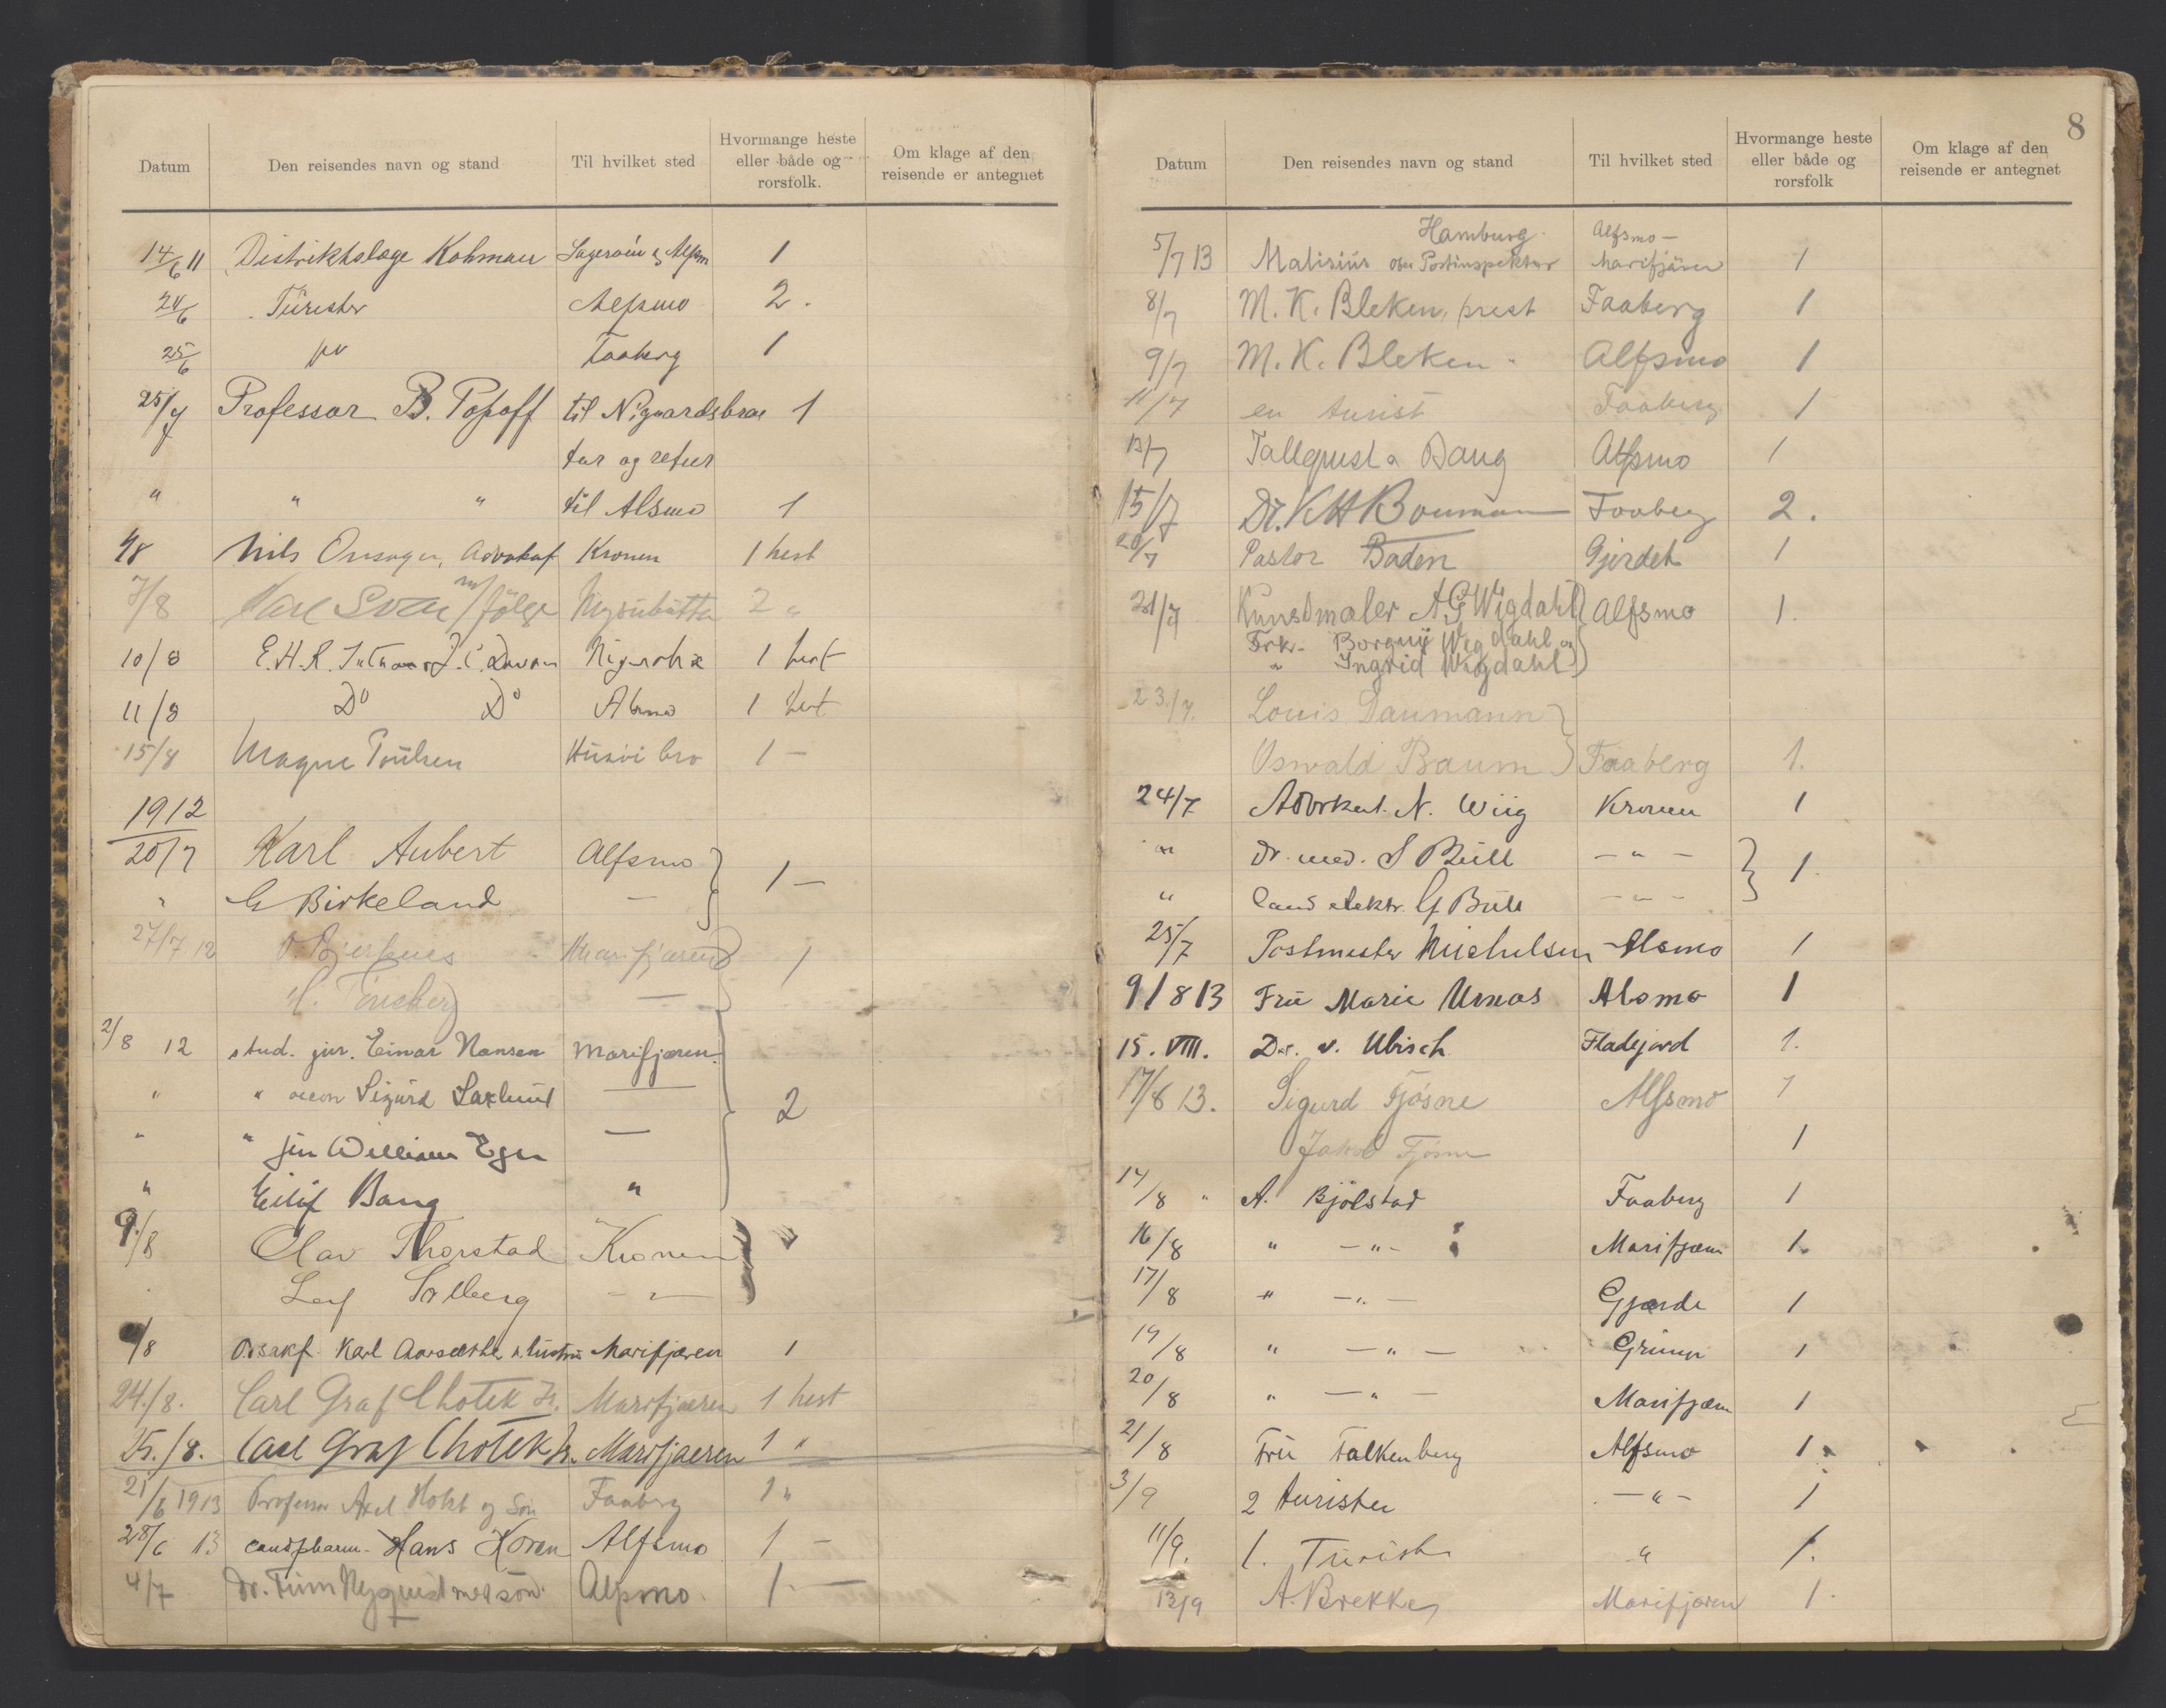 Datum Den reisendes navn og stand Til hvilket sted Hvormange heste eller både og rorsfolk. Om klage af den reisende er antegnet
14/6 11 Distriktslæge Kohman Alfsm 1
24/6 Turister Alfsmo 2.
25/6 Faaberg 1
25/7 Professor B. Popoff til Nigaardsbræ 1
tur og retur
" " " til Alsmo 1
4/8 Nils Onsager, Advokat Kronen 1 hest
7/8 m/ følge 2 "
10/8 E. H. R. 1 hest
11/8 Do Do 1 hest
15/8 Magne Poulsen bro 1 —
1912
20/7 Karl Aubert Alfsmo 1 —
" Birkeland —
27/7 12 Marifjæren 1
Tønsberg —
2/8 12 stud. jur. Einar Nansen Marifjæren.
" " oecon Sigurd Saxlund — 2
" " jur William Eger —
" Eilif Bang "
9/8 Olav Thorstad Kronen
Leif Solberg — " —
/8 Karl Marifjæren 1
24./8. Carl Graf Chotek Jr. Marifjæren 1 hest
25./8. Carl Graf Chotek Jr. Marifjaeren 1 "
21/6 1913 Professor Axel Holst og Søn Faaberg 1 "
28/6 13 cand pharm. Hans Koren Alfsmo 1 —
4/7 Dr. Finn Nyquist med søn. Alfsmo. 1. —
8
Datum Den reisendes navn og stand Til hvilket sted Hvormange heste eller både og rorsfolk Om klage af den reisende er antegnet
Hamburg. Alfsmo —
5/7 13 Malisius Postinspektor Marifjären 1
8/7 M. K. Bleken, prest Faaberg 1
9/7 M. K. Bleken " Alfsmo 1
11/7 en turist Faaberg 1
13/7 Tallqvist Alfsmo 1
15/7 Dr. K H Bouman Faaberg 2.
20/7 Pastor Baden Gjerdet 1
21/7 Kunstmaler A G Wigdahl Alfsmo 1.
Frk. Borgny Wigdahl og
" Ingrid Wigdahl
23./7. Louis Daumann
Oswald Baum Faaberg 1.
24/7 Advokat. N. Wiig Kronen 1
" Dr. med. S Bull — " — 1.
" Cand elektr. G Bull — " —
25/7 Postmester Michelsen Alsmo 1
9/8 13 Fru Marie Urnæs Alsmo 1
15. VIII. Dr. v. Ubisch. 1.
17/8 13. Sigurd Fjøsne Alfsmo 1
Jakob Fjøsne 1
14/8 " A. Bjölstad Faaberg 1
16/8 " — " — Marifjæren 1.
17/8 " — " — Gjærde 1
19/8 " — " — 1
20/8 " — " — Marifjæren 1
21/8 Fru Falkenberg Alfsmo 1
3/9 2 turister — " — 1
11/9. 1. Turist " 1.
13/9 A. Brekke Marifjæren 1.